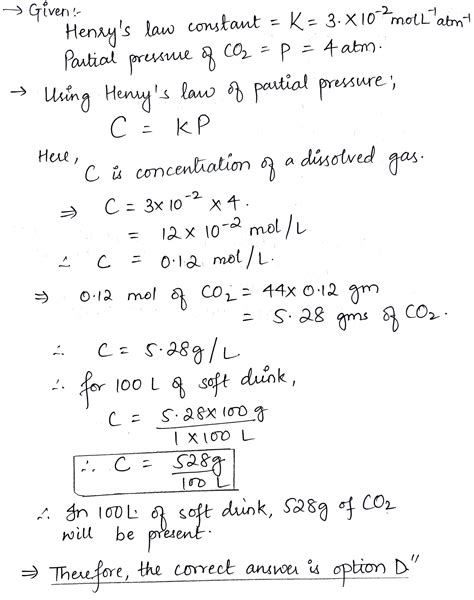 → Given:-
Henry's law constant = K = 3.×10⁻² molL⁻¹atm⁻¹
Partial pressure of CO₂ = P = 4 atm.
→ Using Henry's law of partial pressure;
C = KP
Here,
C is concentration of a dissolved gas.
⇒ C = 3×10⁻² × 4.
= 12 × 10⁻² mol/L
∴ C = 0.12 mol/L.
⇒ 0.12 mol of CO₂ = 44× 0.12 gm
= 5.28 gms of CO₂.
∴ C = 5.28g/L
∴ for 100 L of soft drink,
C = 5.28×100 g
1×100 L
∴ C = 528g
100 L
∴ In 100L of soft drink, 528g of CO₂
will be present.
⇒ Therefore, the correct answer is option D"